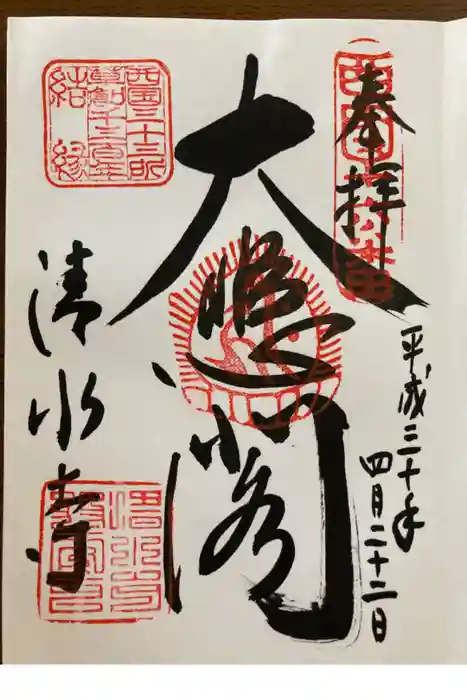 奉拝
平成三十年
四月二十二日
大悲閣
西国三十三所
草創千三百年
結縁
清水寺